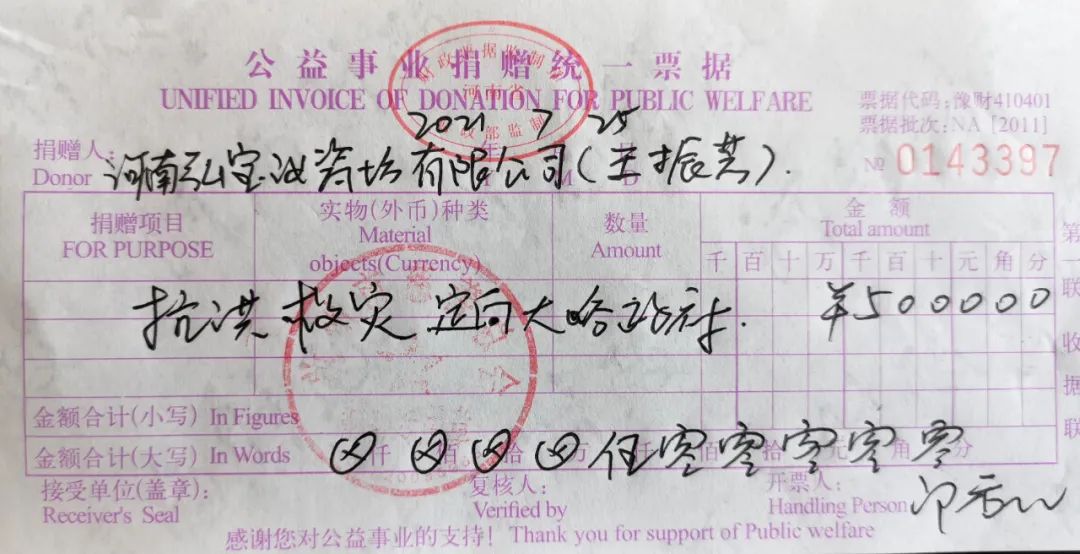 公益事业捐赠统一票据
UNIFIED INVOICE OF DONATION FOR PUBLIC WELFARE
河南省
财政部监制
票据代码:豫财410401
票据批次:NA [2011]
2021 7 25
年 M D
捐赠人:
Donor 河南弘宝汝瓷坊有限公司(王振芳).
№ 0143397
捐赠项目
FOR PURPOSE
实物(外币)种类
Material
objects(Currency)
数量
Amount
金 额
Total amount
千 百 十 万 千 百 十 元 角 分
抗洪救灾 定向大 ¥500000
第一联 收据联
金额合计(小写) In Figures
金额合计(大写) In Words ⊗仟⊗佰⊗拾⊗万伍零佰零拾零元零角零分
接受单位(盖章):
Receiver's Seal
复核人:
Verified by
开票人:
Handling Person
感谢您对公益事业的支持! Thank you for support of Public welfare